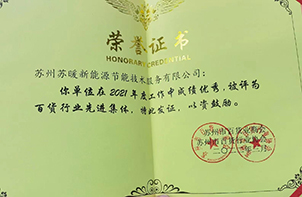 荣誉证书
HONORARY CREDENTIAL
苏州苏暖新能源节能技术服务有限公司：
你单位在2021年度工作中成绩优秀，被评为
百货行业先进集体，特此发证，以资鼓励。